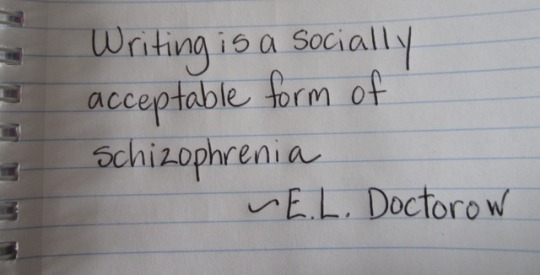 Writing is a socially
acceptable form of
schizophrenia
~E.L. Doctorow